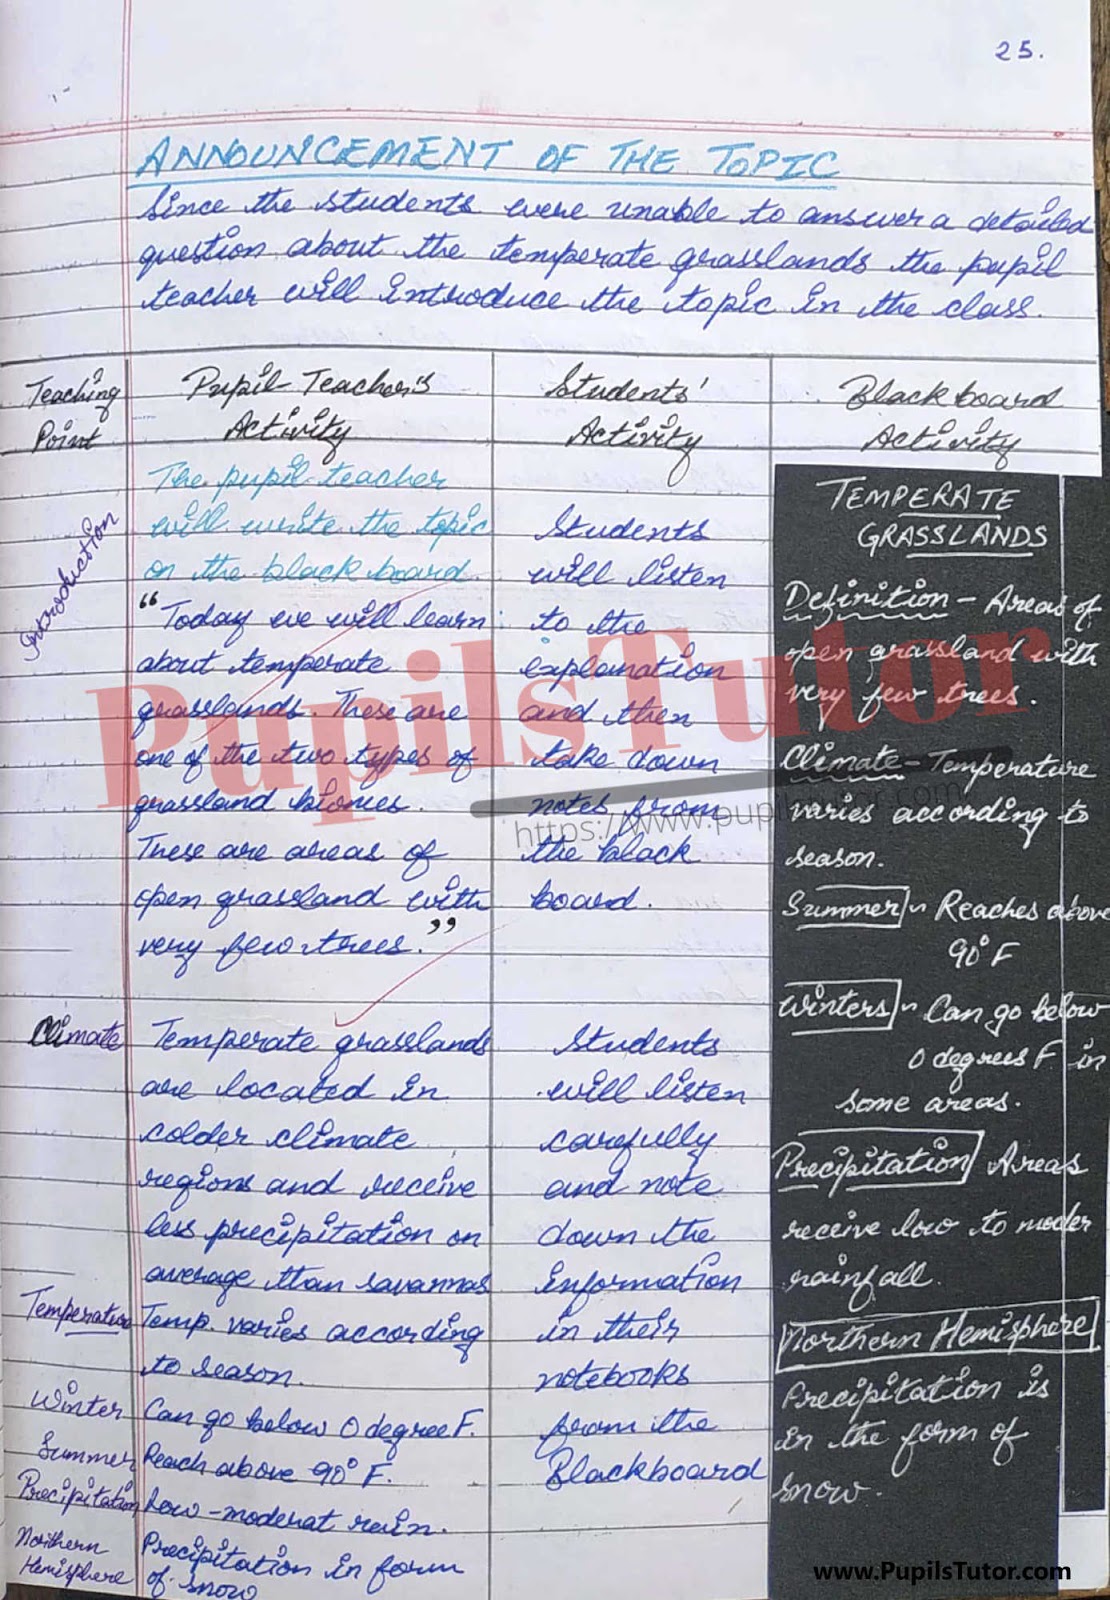 25.
ANNOUNCEMENT OF THE TOPIC
Since the students were unable to answer a detailed
question about the temperate grasslands the pupil
teacher will introduce the topic in the class.
Teaching
Point
Pupil Teacher's
Activity
Students'
Activity
Blackboard
Activity
Introduction
The pupil teacher
will write the topic
on the black board.
"Today we will learn
about temperate
grasslands. These are
one of the two types of
grassland biomes.
These are areas of
open grassland with
very few trees."
Students
will listen
to the
explanation
and then
take down
notes from
the black
board.
TEMPERATE
GRASSLANDS
Definition - Areas of
open grassland with
very few trees.
Climate - Temperature
varies according to
season.
Summer - Reaches above
90° F
Winters - Can go below
0 degrees F. in
some areas.
Precipitation Areas
receive low to moder
rainfall.
Northern Hemisphere
Precipitation is
in the form of
snow.
Climate
Temperate grasslands
are located in
colder climate
regions and receive
less precipitation on
average than savannas
Students
will listen
carefully
and note
down the
information
in their
notebooks
from the
Blackboard
Temperature
Temp. varies according
to season.
Winter
Can go below 0 degree F.
Summer
Reach above 90° F.
Precipitation
Low - moderat rain.
Northern
Hemisphere
Precipitation in form
of snow
PupilsTutor
https://www.pupilstutor.com
www.PupilsTutor.com